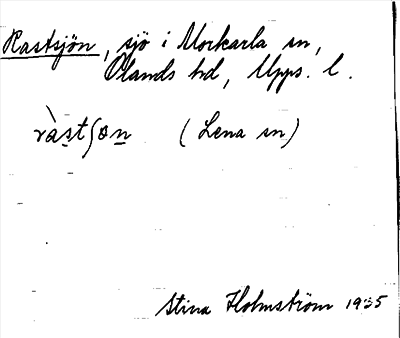 Rastsjön, sjö i Morkarla sn,
Ölands hd, Upps. l.
ràstʃən (Lena sn)
Stina Holmström 1935